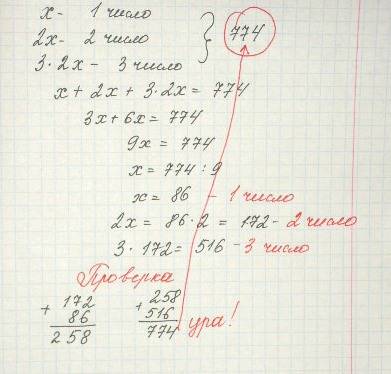 x - 1 число
2x - 2 число
3 · 2x - 3 число
} 774
x + 2x + 3 · 2x = 774
3x + 6x = 774
9x = 774
x = 774 : 9
x = 86 - 1 число
2x = 86 · 2 = 172 - 2 число
3 · 172 = 516 - 3 число
Проверка
+ 172 + 258
86 516
258 774 ура!